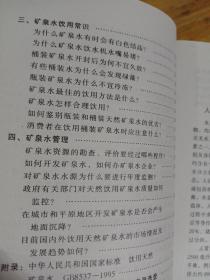 三、矿泉水饮用常识
为什么矿泉水有时会有白色结晶?
为什么矿泉水饮水机水嘴易堵?
桶装矿泉水开封后为何不宜久放?
有些桶装水为什么会发现绿藻?
瓶装矿泉水为什么不宜冷冻?
矿泉水最佳的饮用方法是什么?
矿泉水怎样合理饮用?
如何鉴别瓶装和桶装天然矿泉水的优劣?
消费者在饮用桶装矿泉水时应注意什么?
四、矿泉水管理
矿泉水资源的勘查、评价要经过哪些程序?
如何开发矿泉水,如何办矿泉水企业?
对矿泉水水源为什么要进行年度监测?
政府有关部门对天然饮用矿泉水质量如何
监控?
在城市和平原地区开发矿泉水是否会产生
地面沉降?
目前国内外饮用天然矿泉水的市场情况及
发展趋势如何?
附录:中华人民共和国国家标准 饮用天然
矿泉水 GB8537—1995